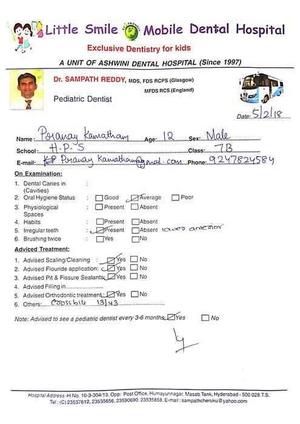 Little Smile Mobile Dental Hospital
Exclusive Dentistry for kids
A UNIT OF ASHWINI DENTAL HOSPITAL (Since 1997)
Dr. SAMPATH REDDY, MDS, FDS RCPS (Glasgow)
MFDS RCS (England)
Pediatric Dentist
Date: 5/2/18
Name: Pranay Kamatham Age: 12 Sex: Male
School: H.P.S Class: 7B
E-mail: Pranay Kamatham@gmail.com Phone: 9247824584
On Examination:
1. Dental Caries in :
(Cavities)
2. Oral Hygiene Status : Good Average Poor
3. Physiological : Present Absent
Spaces
4. Habits : Present Absent
5. Irregular teeth : Present Absent
6. Brushing twice : Yes No
Advised Treatment:
1. Advised Scaling/Cleaning : Yes No
2. Advised Flouride application: Yes No
3. Advised Pit & Fissure Sealants: Yes No
4. Advised Filling in
5. Advised Orthodontic treatment: Yes No
6. Others: Crossbite 13/43
Note: Advised to see a pediatric dentist every 3-6 months. Yes No
Hospital Address - H.No. 10-3-304/13, Opp: Post Office, Humayunnagar, Masab Tank, Hyderabad - 500 028 T.S.
Tel: (C) 23537612, 23535656, 23590690, 23535858, E-mail: sampathcheruku@yahoo.com